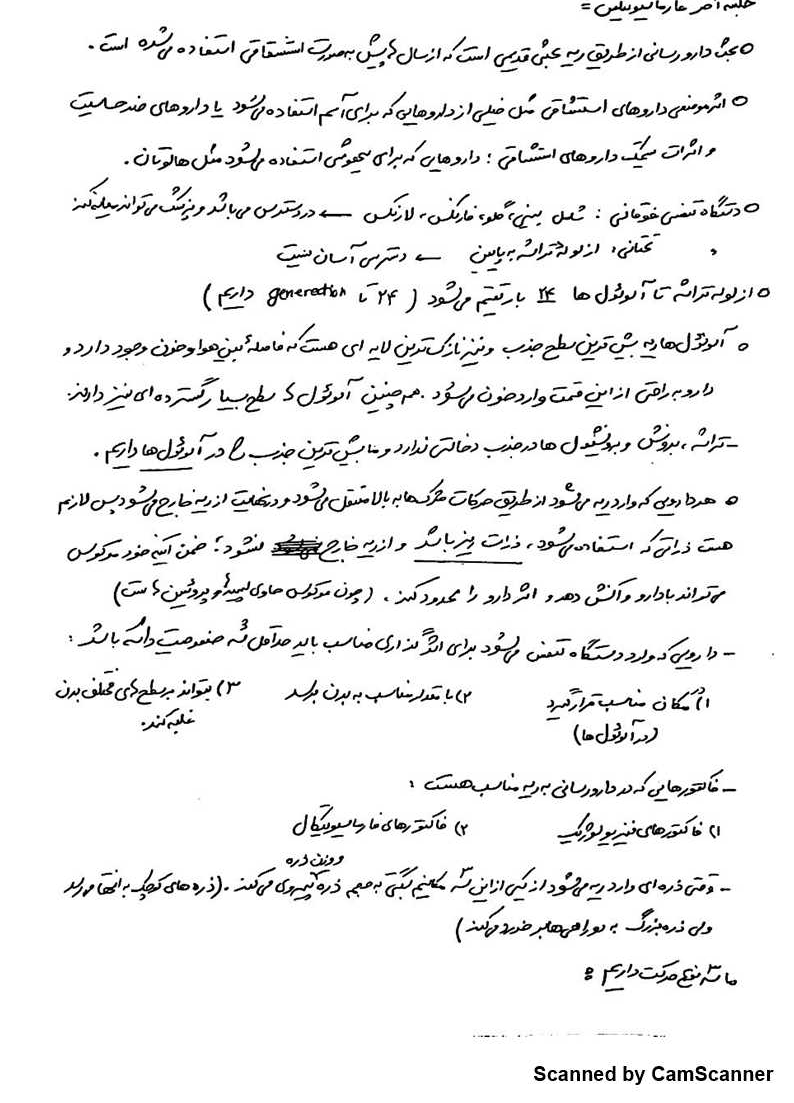 جلسه آخر فارماسیوتیکس =
○ بحث دارورسانی از طریق ریه بحثی قدیمی است که از سال ها پیش به صورت استنشاقی استفاده می شده است.
○ اثر موضعی داروهای استنشاقی مثل خیلی از داروهایی که برای آسم استفاده می شود یا داروهای ضد حساسیت
و اثرات سیستمیک داروهای استنشاقی: داروهایی که برای بیهوشی استفاده می شود مثل هالوتان.
○ دستگاه تنفسی فوقانی: شامل بینی، گلو، فارنکس، لارنکس ← در دسترس می باشد و پزشک می تواند معاینه کند
" تحتانی: از لوله تراشه به پایین ← دسترسی آسان نیست
○ از لوله تراشه تا آلوئول ها ۲۴ بار تقسیم می شود ( ۲۴ تا generation داریم )
○ آلوئول ها ریه بیش ترین سطح جذب و نیز نازک ترین لایه ای هست که فاصله بین هوا و خون وجود دارد و
دارو به راحتی از این قسمت وارد خون می شود. همچنین آلوئول ها سطح بسیار گسترده ای نیز دارند.
- تراشه، برونش و برونشیول ها در جذب دخالتی ندارد و ما بیش ترین جذب را در آلوئول ها داریم.
○ هر دارویی که وارد ریه می شود از طریق حرکات مژک ها به بالا منتقل می شود و در نهایت از ریه خارج می شود پس لازم
هست ذراتی که استفاده می شود، ذرات ریز باشد و از ریه خارج نشود؛ ضمن اینکه خود موکوس
می تواند با دارو واکنش دهد و اثر دارو را محدود کند. (چون موکوس حاوی لیپیدها و پروتئین ها ست)
- دارویی که وارد دستگاه تنفس می شود برای اثرگذاری مناسب باید حداقل سه خصوصیت داشته باشد:
۱) در مکان مناسب قرار گیرد ۲) با مقدار مناسب به بدن برسد ۳) بتواند بر سطح های مختلف بدن
(در آلوئول ها) غلبه کند.
- فاکتورهایی که در دارورسانی به ریه مناسب هست:
۱) فاکتورهای فیزیولوژیک ۲) فاکتورهای فارماسیوتیکال
و وزن ذره
- وقتی ذره ای وارد ریه می شود از یکی از این سه مکانیسم بستگی به حجم ذره پیروی می کند. (ذره های کوچک به انتها می رسد
ولی ذره بزرگ به دوراهی ها برخورد می کند)
ما سه نوع حرکت داریم:
Scanned by CamScanner